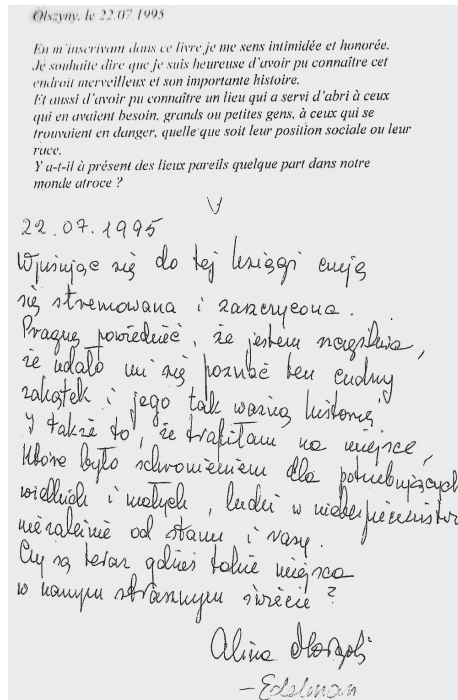 Olszyny, le 22.07.1995
En m'inscrivant dans ce livre je me sens intimidée et honorée.
Je souhaite dire que je suis heureuse d'avoir pu connaître cet
endroit merveilleux et son importante histoire.
Et aussi d'avoir pu connaître un lieu qui a servi d'abri à ceux
qui en avaient besoin, grands ou petites gens, à ceux qui se
trouvaient en danger, quelle que soit leur position sociale ou leur
race.
Y a-t-il à présent des lieux pareils quelque part dans notre
monde atroce ?
22.07.1995
Wpisując się do tej księgi czuję
się stremowana i zaszczycona.
Pragnę powiedzieć, że jestem szczęśliwa,
że udało mi się poznać ten cudny
zakątek i jego tak ważną historię
I także to, że trafiłam na miejsce,
które było schronieniem dla potrzebujących
wielkich i małych, ludzi w niebezpieczeństwie
niezależnie od stanu i rasy.
Czy są teraz gdzieś takie miejsca
w naszym strasznym świecie?
Alina
- Edelman